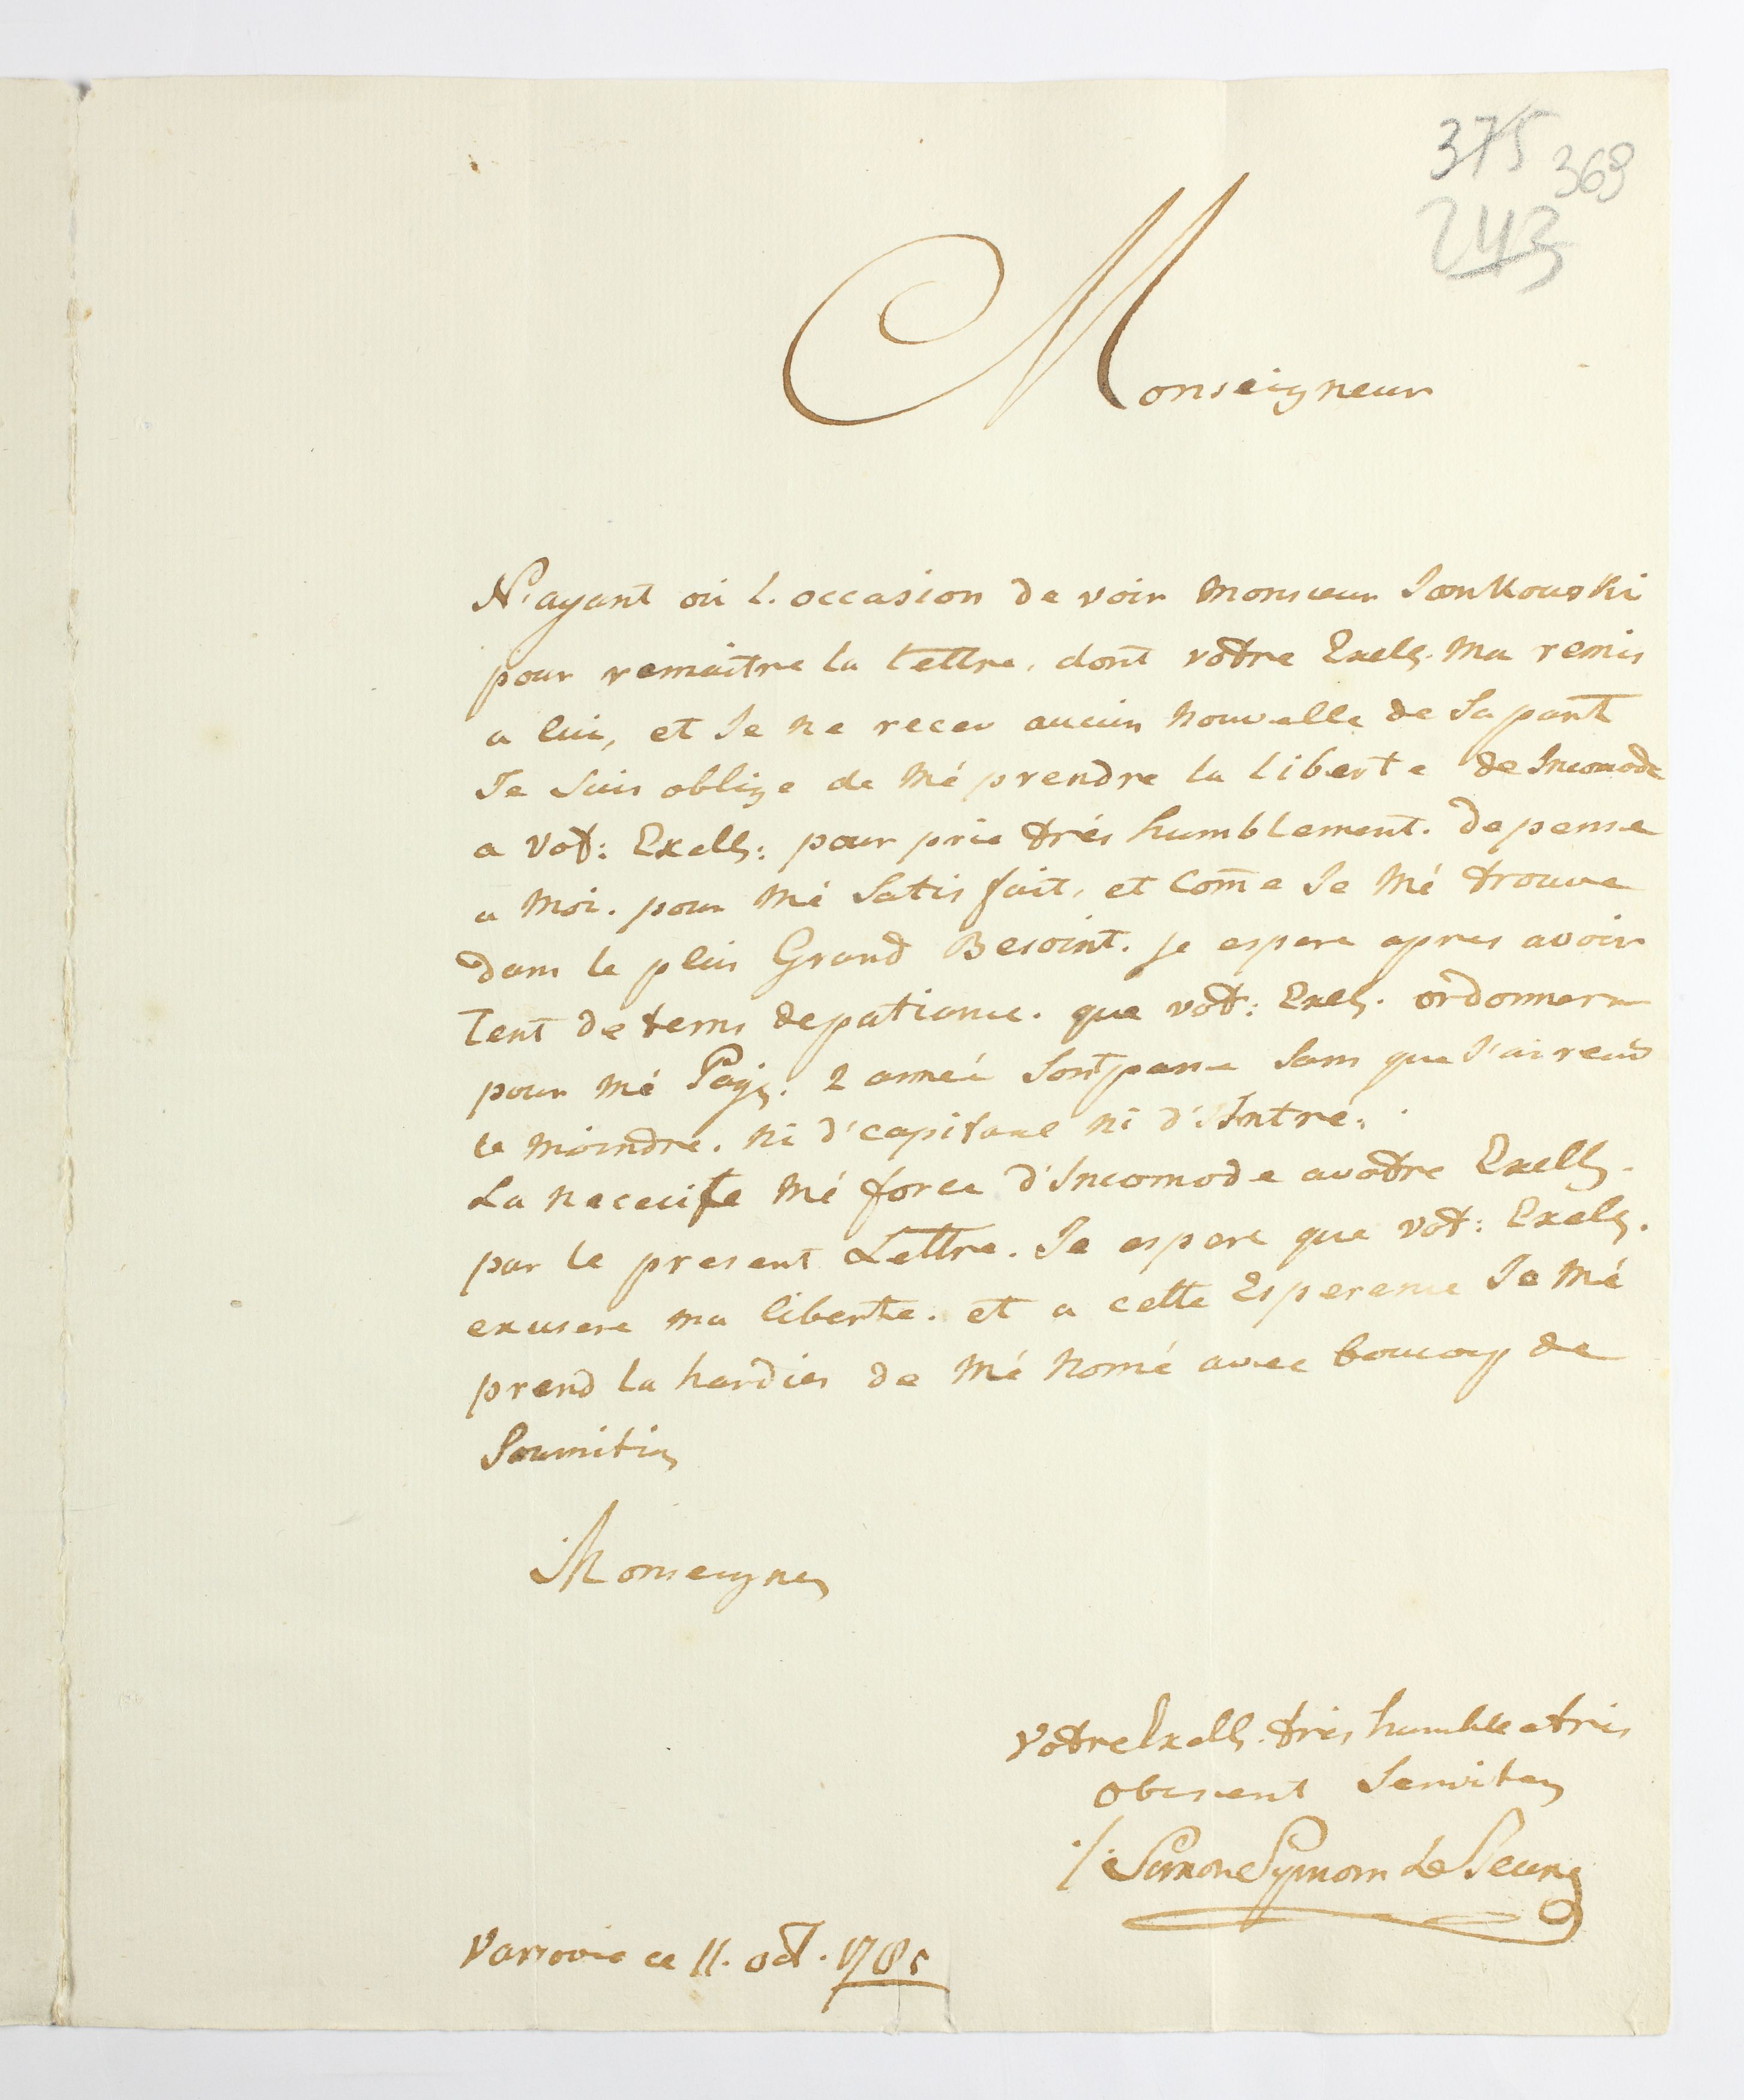 375 369
243
Monseigneur
N'ayant oú l'occasion de voir Monsieur Jankouski
pour remaitre la lettre, dont votre Exell. Ma remis
a lui, et Je ne recev aucun nouvelle de Sa part
Je Suis oblige de Mé prendre la liberte de Incomode
a Vot: Exell: pour prie trés humblement. de pense
a Moi. pour Mé Satis fait, et Come Je Mé trouve
dans le plus Grand Besoint. je espere apres avoir
Tent de tems de patiance. que vot: Exel. ordonnera
pour mé Paÿe. 2 année Sont passe Sans que J'ai reçus
le moindre. ni d'capitaxe ni d'Intre:
La necessite Mé force d'Incomode a votre Exell.
par le present Lettre. Je espere que vot: Exell.
exusere ma liberte. et a cette Esperence Je Mé
prend la hardies de Mé Nomé avec boucoup de
Soumition
Monseigneur
Votre Exell. trés humble et tris
obesent Serviter
Simon Le Jeune
Varsovie ce 11. oct. 1785